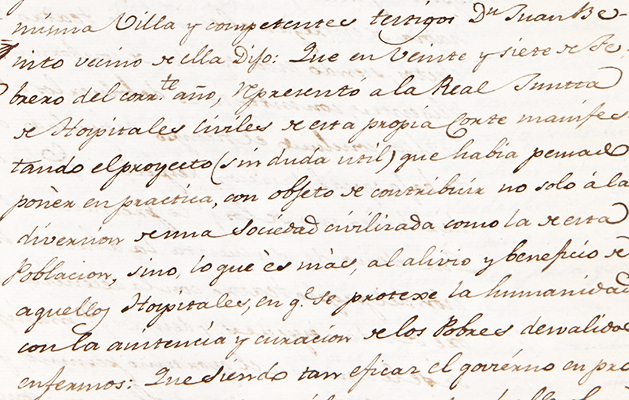 misma Villa y competentes testigos Dn. Juan Be-
nito vecino de ella Dijo: Que en Veinte y siete de Fe-
brero del corrte. año, representó a la Real Juntta
de Hospitales Civiles de esta propia Corte manifes
tando el proyecto (sin duda util) que habia pensado
ponèr en practica, con objeto de contribuir no solo á la
diversion de una Sociedad civilizada como la de esta
Poblacion, sino, lo que ès màs, al alivio y beneficio de
aquellos Hospitales, en q.e se protexe la humanidad
con la asistencia y curacion de los Pobres desvalidos
enfermos: Que siendo tan eficaz el govierno en pro